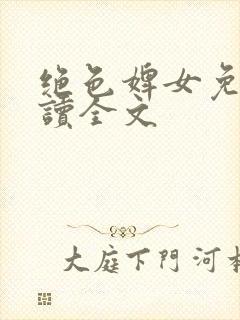 絶色婢女免
讀全文
大庭下門河